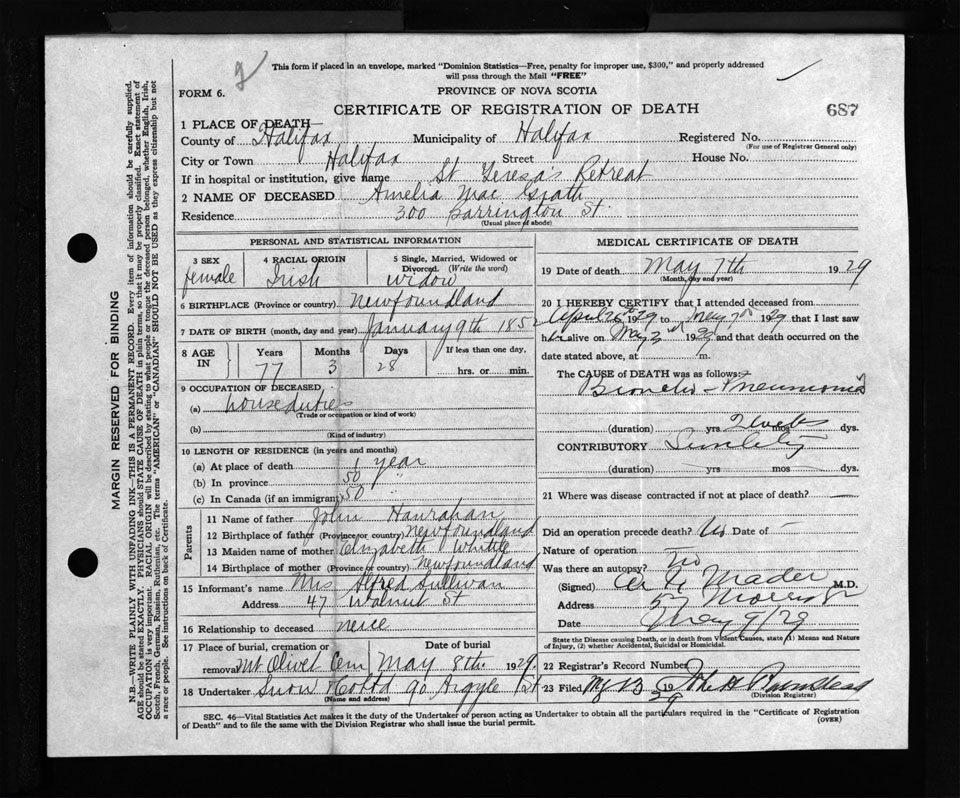 This form if placed in an envelope, marked "Dominion Statistics—Free, penalty for improper use, $300," and properly addressed
will pass through the Mail "FREE"
FORM 6.
PROVINCE OF NOVA SCOTIA
CERTIFICATE OF REGISTRATION OF DEATH
687
1 PLACE OF DEATH
County of Halifax Municipality of Halifax Registered No.
(For use of Registrar General only)
City or Town Halifax Street House No.
If in hospital or institution, give name St Teresa's Retreat
2 NAME OF DECEASED Amelia Mac Grath
Residence 300 Barrington St.
(Usual place of abode)
PERSONAL AND STATISTICAL INFORMATION
3 SEX 4 RACIAL ORIGIN 5 Single, Married, Widowed or
Divorced. (Write the word)
female Irish widow
6 BIRTHPLACE (Province or country) Newfoundland
7 DATE OF BIRTH (month, day and year) January 9th 1852
8 AGE IN Years Months Days If less than one day,
77 3 28 hrs. or min.
9 OCCUPATION OF DECEASED
(a) house duties
(Trade or occupation or kind of work)
(b)
(Kind of industry)
10 LENGTH OF RESIDENCE (in years and months)
(a) At place of death 1 year
(b) In province 50 "
(c) In Canada (if an immigrant) 50 "
Parents
11 Name of father John Hanrahan
12 Birthplace of father (Province or country) Newfoundland
13 Maiden name of mother Elizabeth Whittle
14 Birthplace of mother (Province or country) Newfoundland
15 Informant's name Mrs Alfred Sullivan
Address 47 Walnut St
16 Relationship to deceased neice
17 Place of burial, cremation or Date of burial
removal Mt Olivet Cem May 8th. 1929.
18 Undertaker Snow & Co Ltd 90 Argyle St
(Name and address)
MEDICAL CERTIFICATE OF DEATH
19 Date of death May 7th 1929
(Month, day and year)
20 I HEREBY CERTIFY that I attended deceased from
April 26th 1929 to May 7th 1929 that I last saw
her alive on May 1929 and that death occurred on
date stated above, at m.
The CAUSE of DEATH was as follows:
Broncho-Pneumonia
(duration) yrs 2 weeks mos dys.
CONTRIBUTORY Senility
(duration) yrs mos dys.
21 Where was disease contracted if not at place of death? —
Did an operation precede death? No Date of —
Nature of operation
Was there an autopsy? No
(Signed) Mader M.D.
Address 57 Morris St
Date May 7/29
State the Disease causing Death, or in death from Violent Causes, state (1) Means and Nature
of Injury, (2) whether Accidental, Suicidal or Homicidal.
22 Registrar's Record Number
23 Filed 1929
(Division Registrar)
SEC. 46—Vital Statistics Act makes it the duty of the Undertaker or person acting as Undertaker to obtain all the particulars required in the "Certificate of Registration
of Death" and to file the same with the Division Registrar who shall issue the burial permit.
(OVER)
MARGIN RESERVED FOR BINDING
N.B.—WRITE PLAINLY WITH UNFADING INK—THIS IS A PERMANENT RECORD. Every item of information should be carefully supplied.
AGE should be stated EXACTLY. PHYSICIANS should STATE CAUSE OF DEATH in plain terms, so that it may be properly classified. Exact statement of
OCCUPATION is very important. RACIAL ORIGIN will be described by stating to what people or tongue the deceased person belonged, whether English, Irish,
Scotch, French, German, Russian, Ruthenian, etc. The terms "AMERICAN" or "CANADIAN" SHOULD NOT BE USED as they express citizenship but not
a race or people. See instructions on back of Certificate.